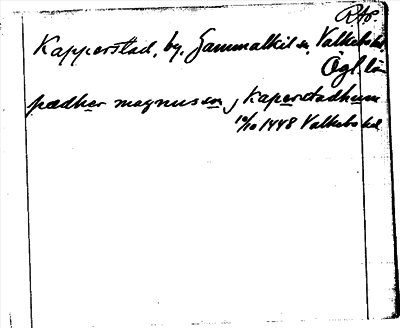 RAp
Kapperstad, by, Gammalkil sn, Valkebo hd,
Ögl. län
pædher magnus son j Kaperstadhum
10/10 1448 Valkebo hd